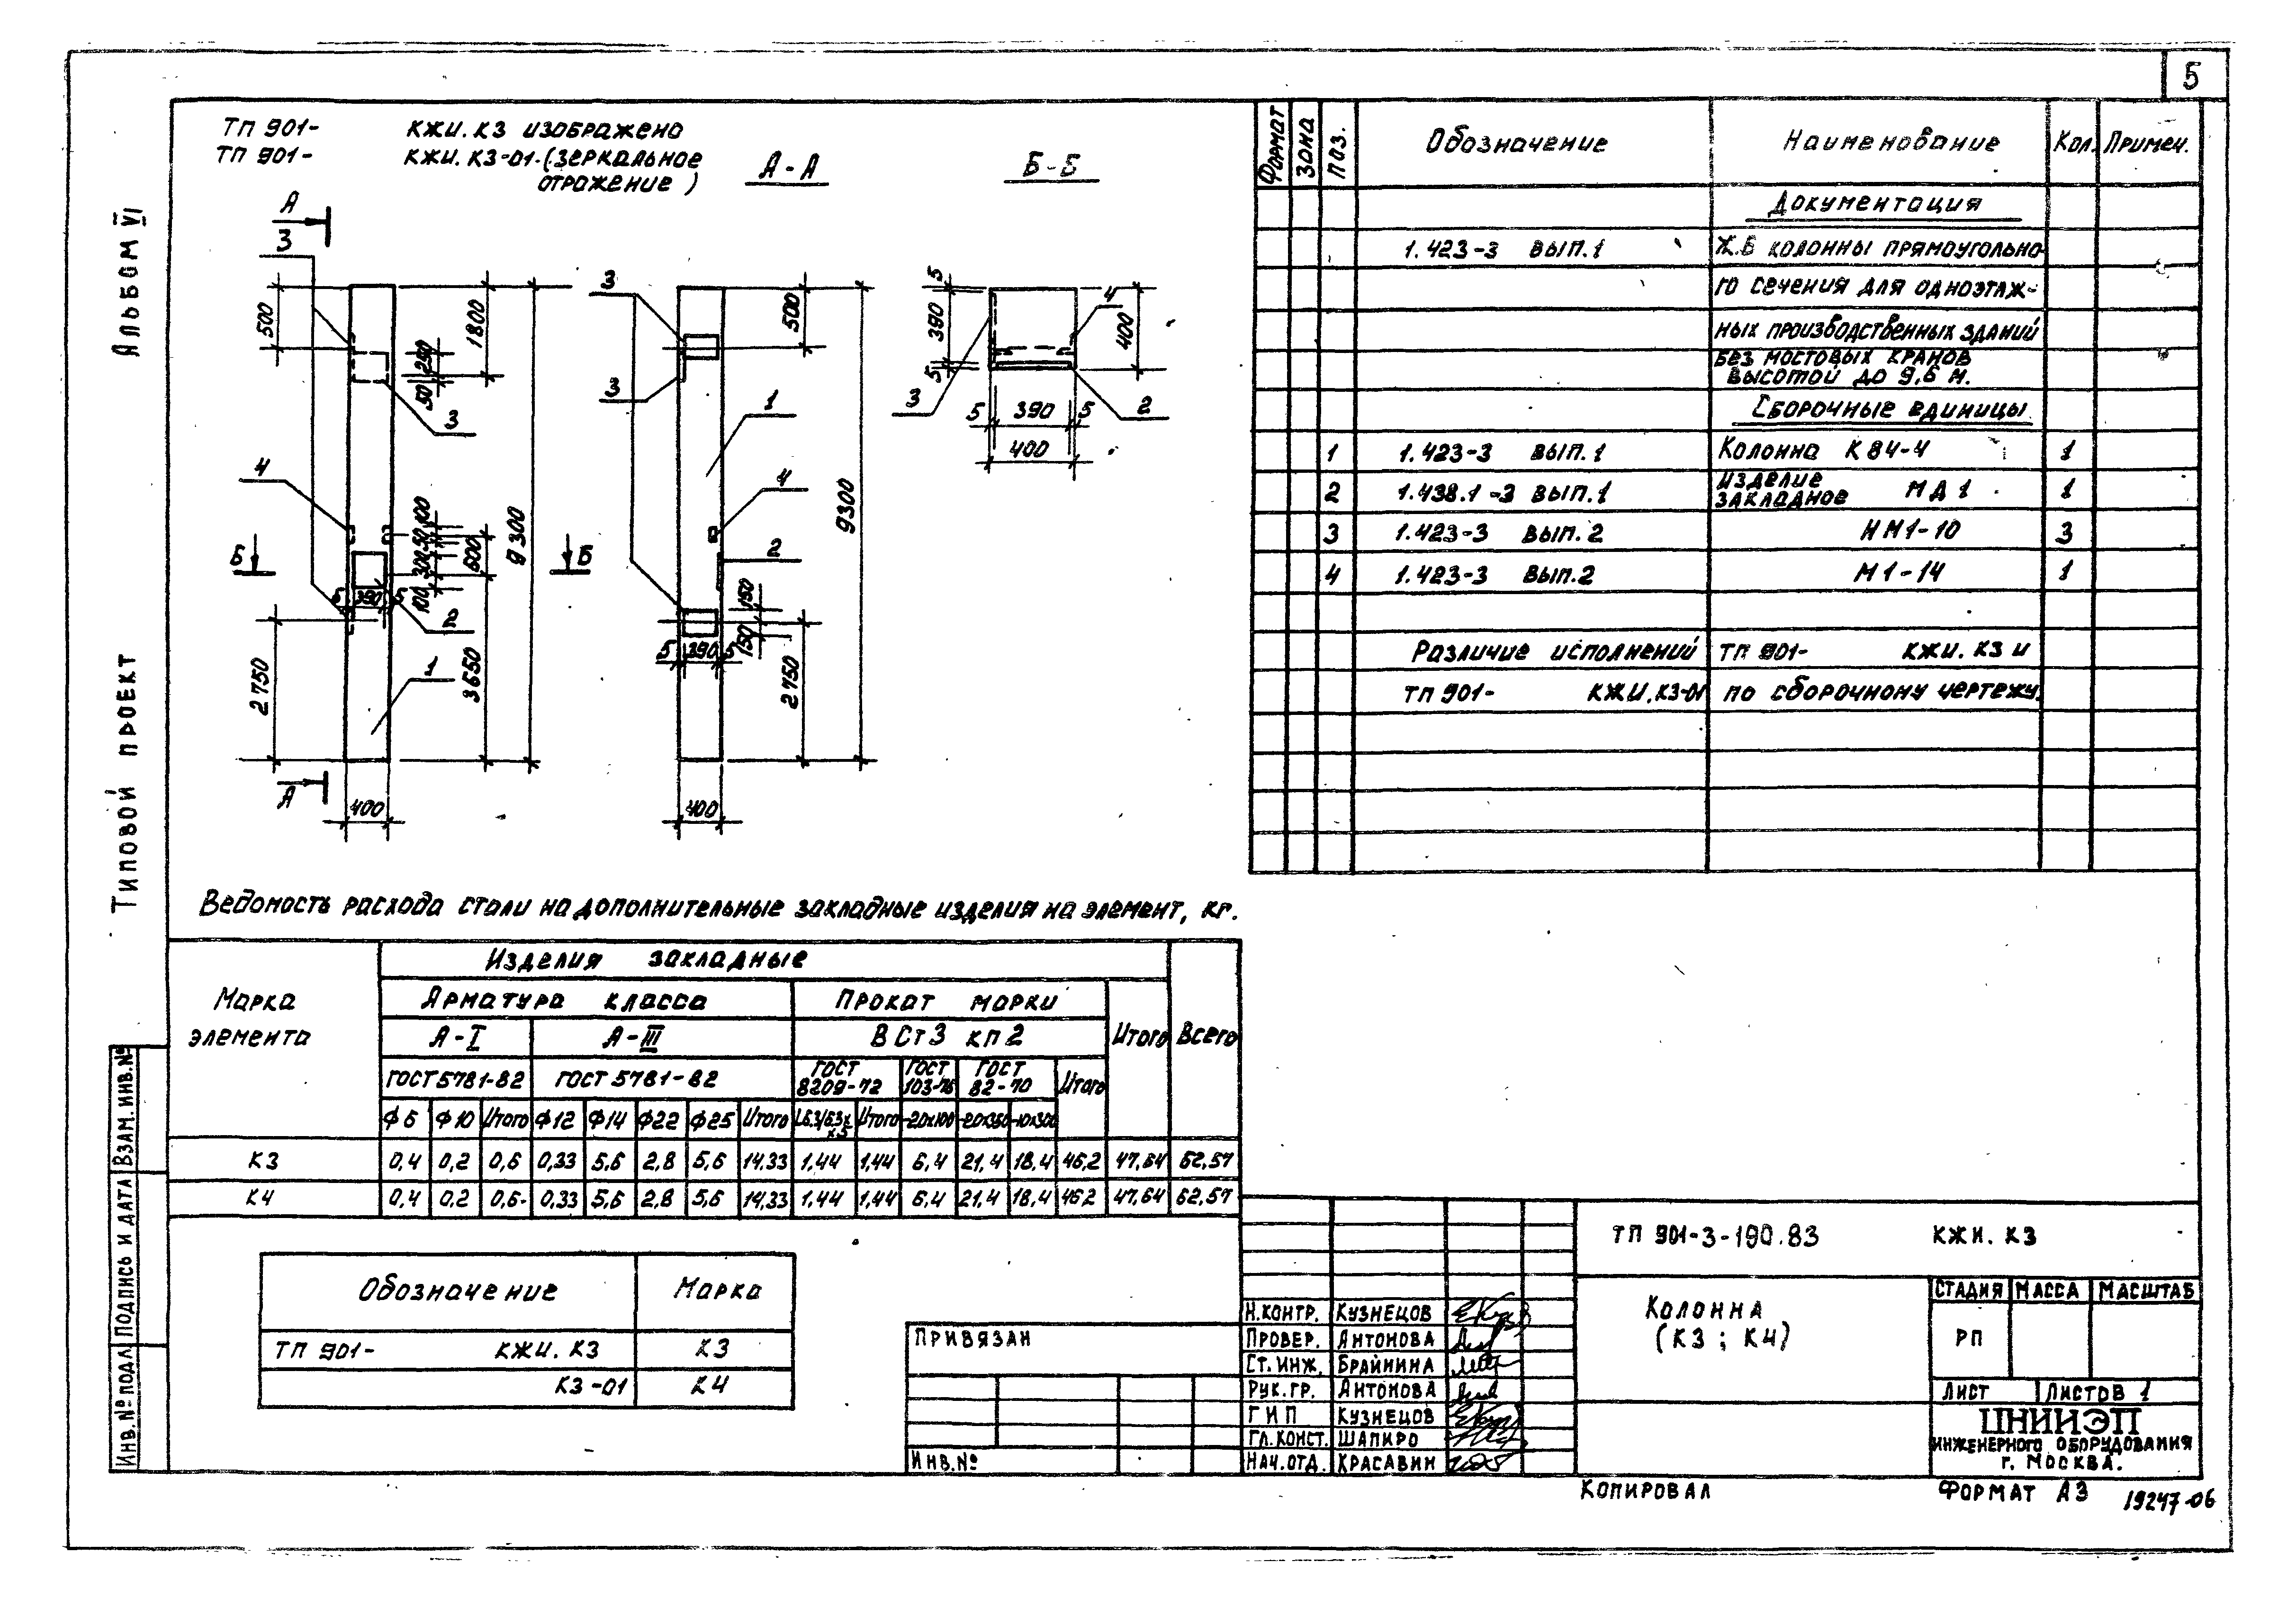 5
ТП 901- КЖИ. К3 изображено
ТП 901- КЖИ. К3-01 (зеркальное
отражение)
А-А
Б-Б
А
3
500
1800
250
50
3
4
100
50
300
100
600
9300
Б
Б
5 390 5
2
2750
3650
1
А
400
3
500
3
1
4
9300
2
150
150
5 390 5
2750
400
5
390
5
4
400
3
2
5 390 5
400
Альбом VI
Типовой проект
Формат
Зона
Поз.
Обозначение
Наименование
Кол.
Примеч.
Документация
1.423-3 вып.1 Ж.Б колонны прямоугольно
го сечения для одноэтаж-
ных производственных зданий
без мостовых кранов
высотой до 9,6 м.
Сборочные единицы
1 1.423-3 вып.1 Колонна К84-4 1
2 1.438.1-3 вып.1 Изделие закладное МД1 1
3 1.423-3 вып.2 НМ1-10 3
4 1.423-3 вып.2 М1-14 1
Различие исполнений ТП 901- КЖИ. К3 и
ТП 901- КЖИ.К3-01 по сборочному чертежу.
Ведомость расхода стали на дополнительные закладные изделия на элемент, кг.
Марка
элемента
Изделия закладные
Арматура класса
Прокат марки
Итого
Всего
А-I
А-III
ВСт3 кп2
ГОСТ 5781-82
ГОСТ 5781-82
ГОСТ 8209-72
ГОСТ 103-76
ГОСТ 82-70
Итого
Ф6 Ф10 Итого Ф12 Ф14 Ф22 Ф25 Итого Итого -20х100 -20х350 -10х300
К3 0,4 0,2 0,6 0,33 5,6 2,8 5,6 14,33 1,44 1,44 6,4 21,4 18,4 46,2 47,64 62,57
К4 0,4 0,2 0,6 0,33 5,6 2,8 5,6 14,33 1,44 1,44 6,4 21,4 18,4 46,2 47,64 62,57
Обозначение Марка
ТП 901- КЖИ. К3 К3
К3-01 К4
Привязан
Инв.№
Взам. инв.№
Подпись и дата
Инв.№ подл
ТП 901-3-190.83 КЖИ. К3
Н.контр. Кузнецов
Провер. Антонова
Ст. инж. Брайнина
Рук.гр. Антонова
ГИП Кузнецов
Гл.конст. Шапиро
Нач.отд. Красавин
Колонна
(К3 ; К4)
Стадия Масса Масштаб
РП
Лист Листов 1
ЦНИИЭП
инженерного оборудования
г. Москва.
Копировал
Формат А3
19247-06